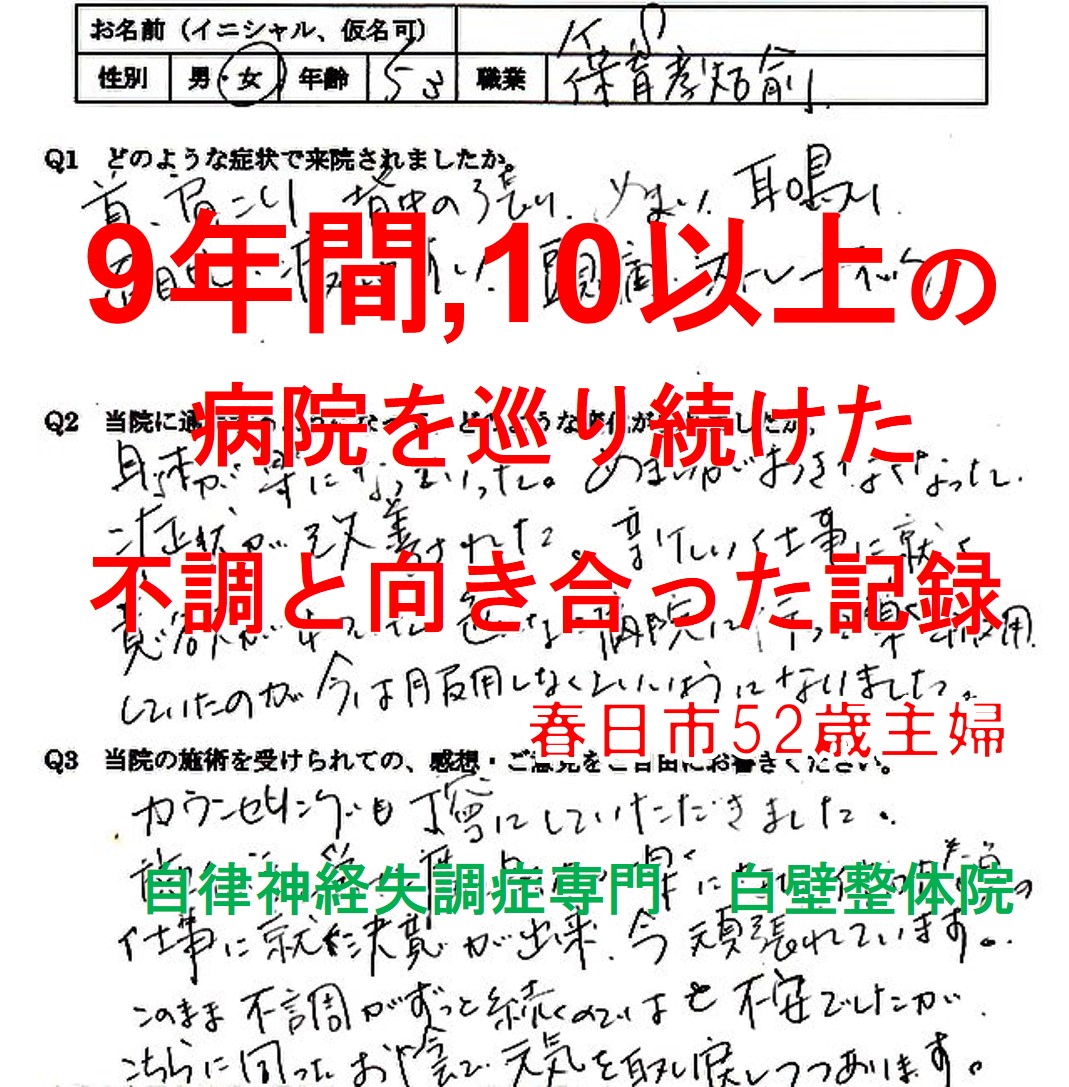 お名前（イニシャル、仮名可）
性別 男・女 年齢 53 職業
Q1 どのような症状で来院されましたか。
首、肩こり 背中の張り、めまい、耳鳴り
9年間,10以上の
Q2 当院に
病院を巡り続けた
身体が楽になっていった。めまいがおきなくなった。
症状が改善された。新しい仕事に就く
不調と向き合った記録
していたのが今は服用しなくていいようになりました。
春日市52歳主婦
Q3 当院の施術を受けられての、感想・ご意見をご自由にお書きください。
カウンセリングも丁寧にしていただきました。
自律神経失調症専門 白壁整体院
仕事に就く決意が出来、今頑張れています。
このまま不調がずっと続くのではと不安でしたが
こちらに伺ったお陰で元気を取り戻しつつあります。